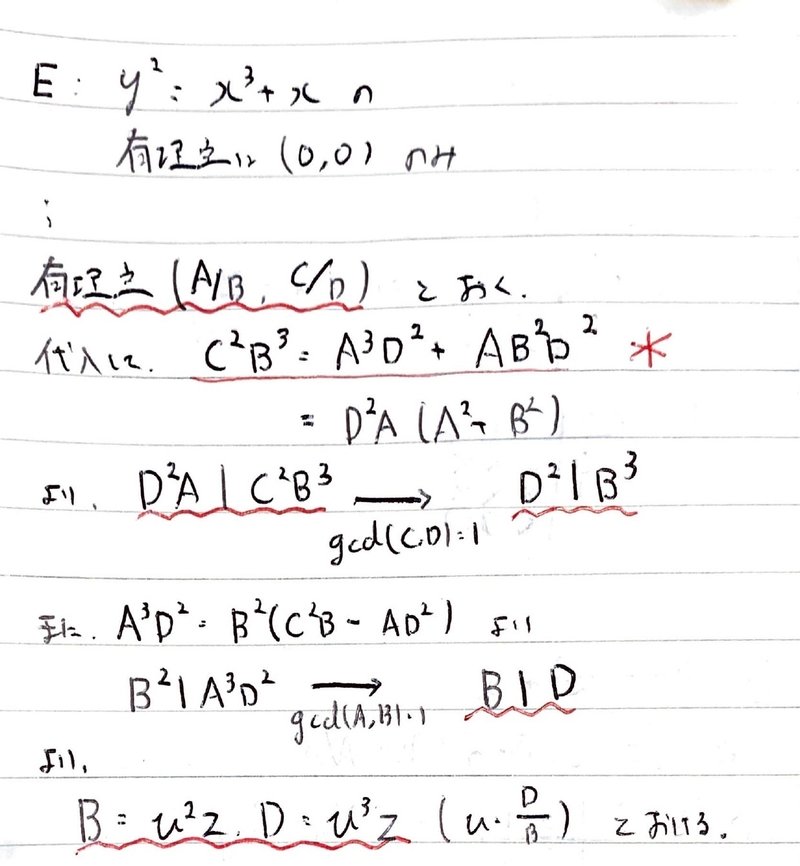 E: y² = x³ + x の
有理点は (0,0) のみ
∵
有理点 (A/B, C/D) とおく.
代入して. C²B³ = A³D² + AB²D² *
= D²A (A² + B²)
より, D²A | C²B³ → D² | B³
gcd(C,D)=1
また. A³D² = B²(C²B - AD²) より
B² | A³D² → B | D
gcd(A,B)=1
より,
B = u²z, D = u³z (u = D/B) とおける.